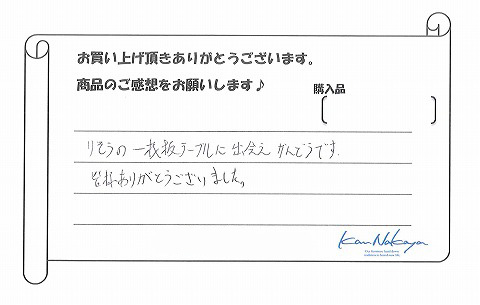 お買い上げ頂きありがとうございます。
商品のご感想をお願いします♪
購入品
りそうの一枚板テーブルに出会えかんどうです.
皆様ありがとうございました。
Kan Nakaya